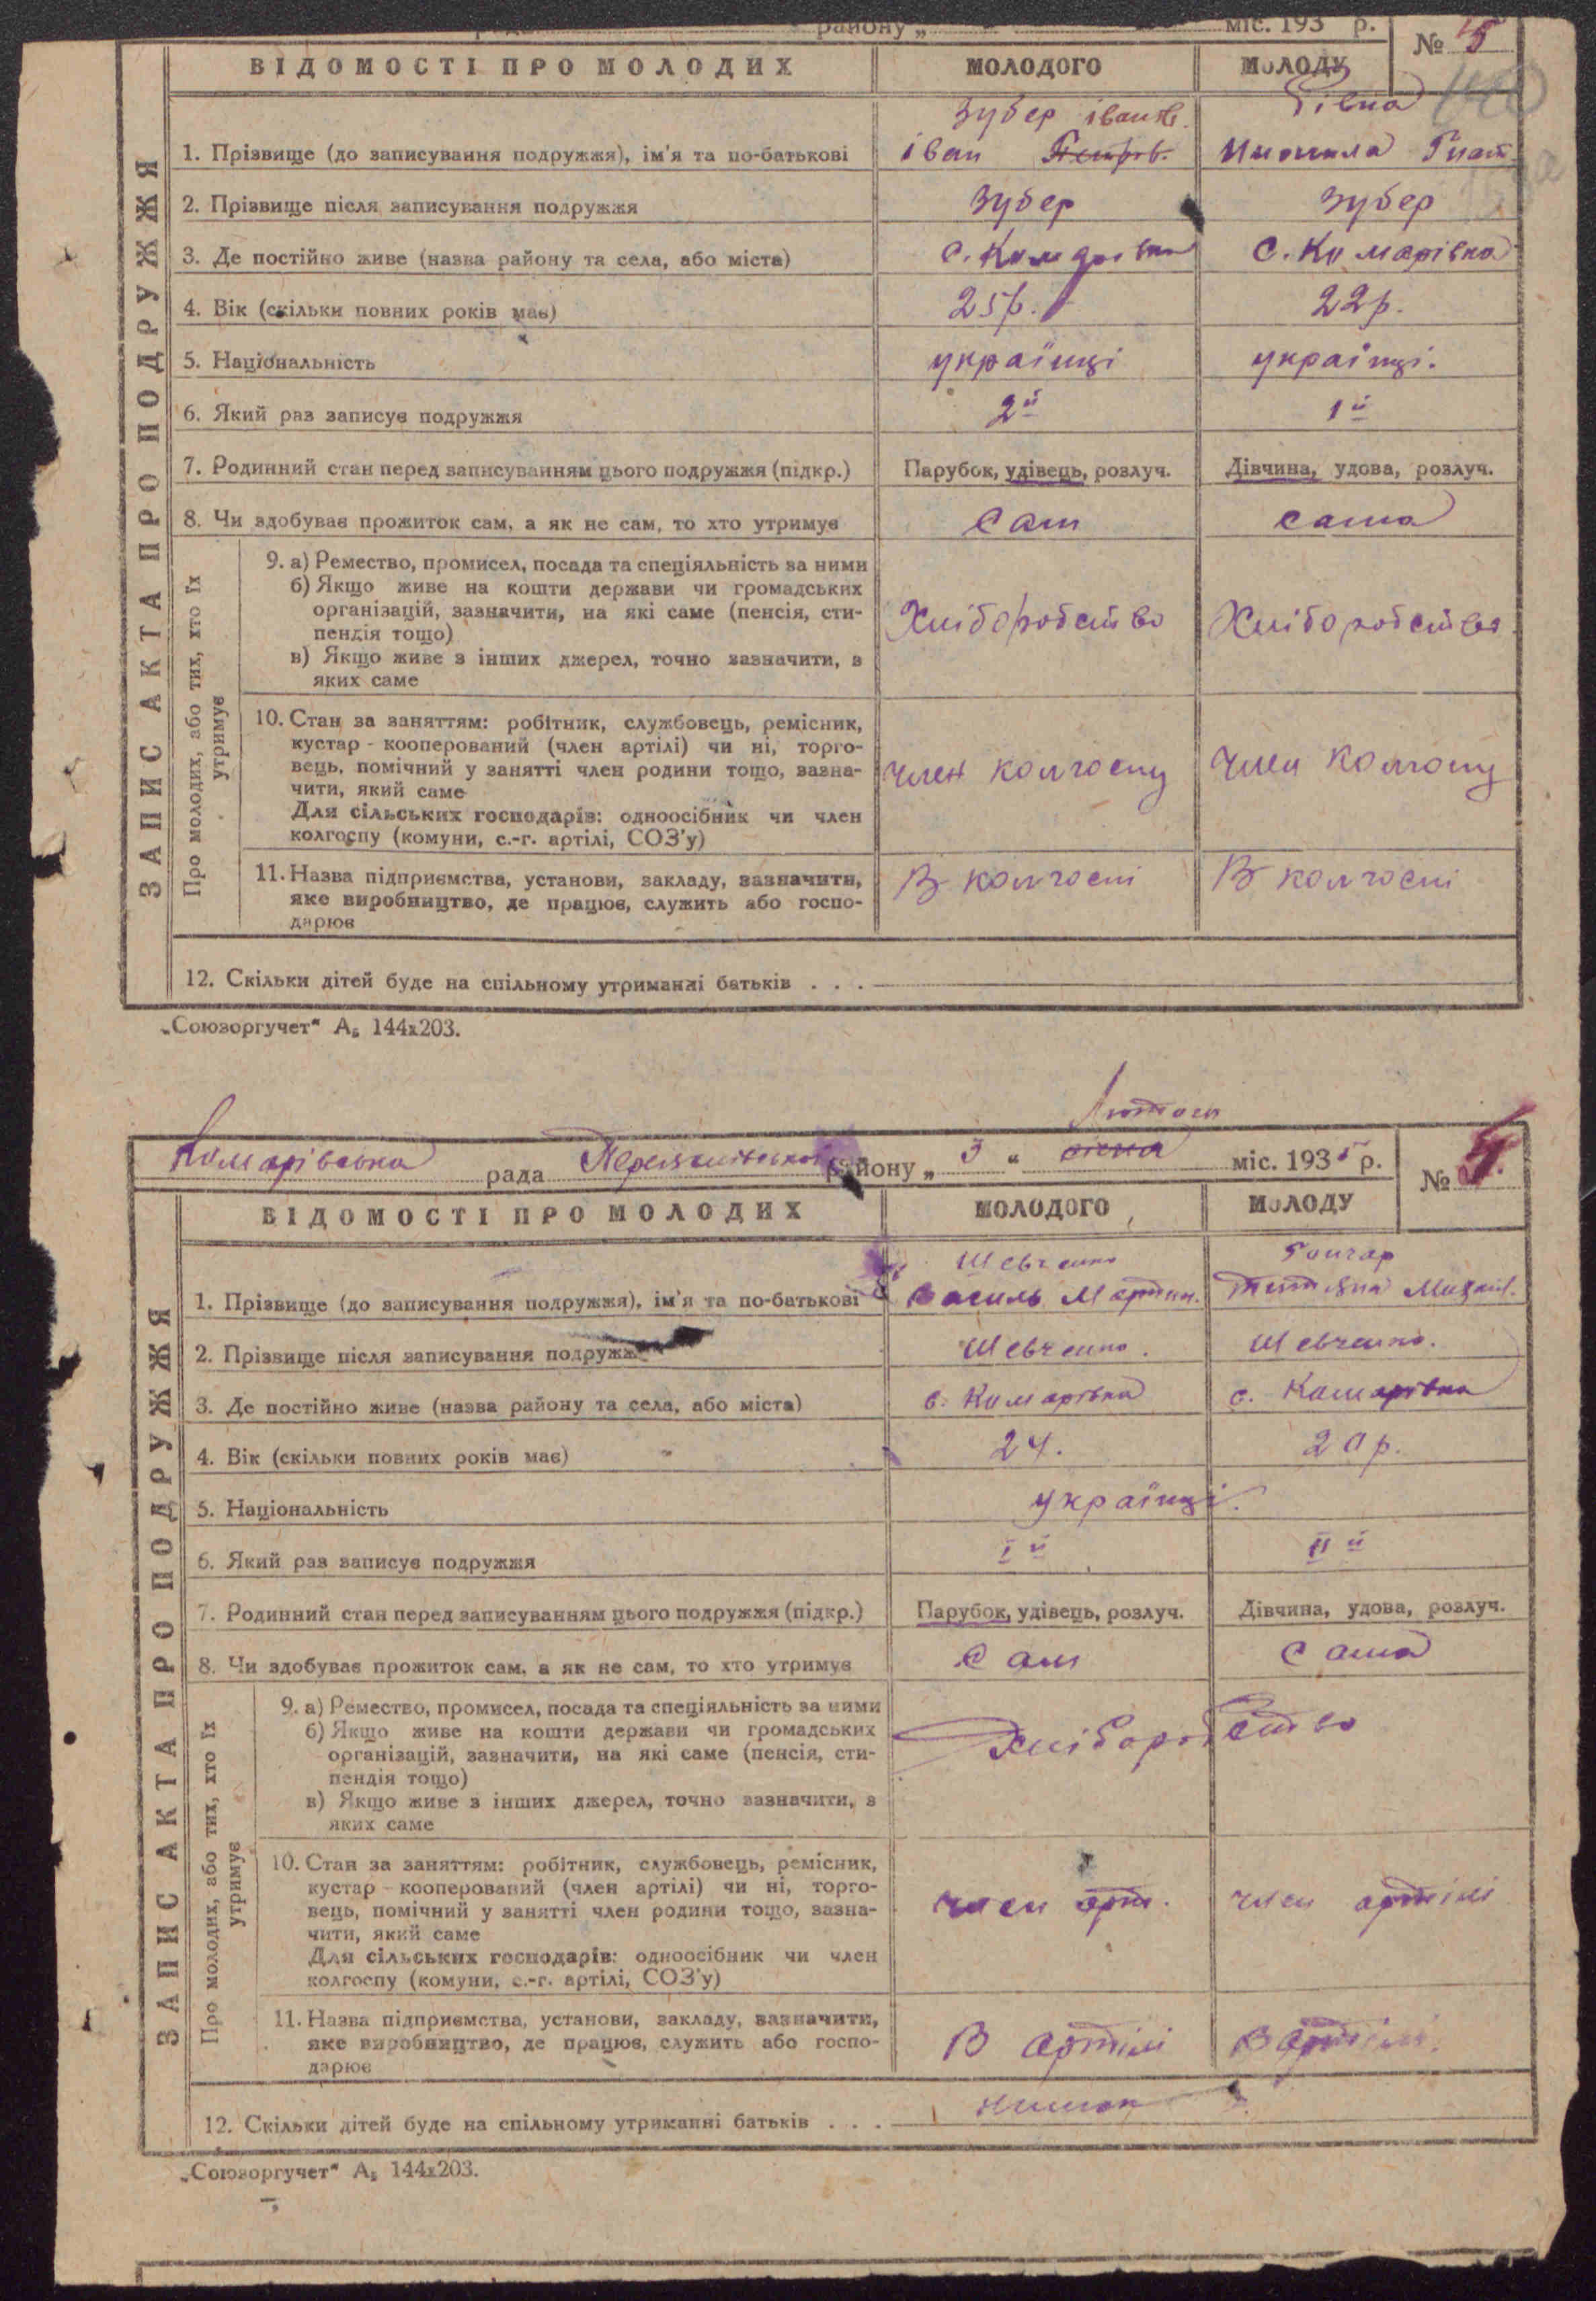 району „ міс. 193 р.
№ 5
ВІДОМОСТІ ПРО МОЛОДИХ МОЛОДОГО МОЛОДУ
ЗАПИС АКТА ПРО ПОДРУЖЖЯ
Зубер іванов. Гівна
1. Прізвище (до записування подружжя), ім'я та по-батькові іван Петров. Гнат.
2. Прізвище після записування подружжя Зубер Зубер
3. Де постійно живе (назва району та села, або міста) с. Комарівка с. Комарівка
4. Вік (скільки повних років має) 25р. 22р.
5. Національність українці українці.
6. Який раз записує подружжя 2й 1й
7. Родинний стан перед записуванням цього подружжя (підкр.) Парубок, удівець, розлуч. Дівчина, удова, розлуч.
8. Чи здобуває прожиток сам, а як не сам, то хто утримує Сам сама
Про молодих, або тих, хто їх утримує
9. а) Ремество, промисел, посада та спеціяльність за ними
б) Якщо живе на кошти держави чи громадських
організацій, зазначити, на які саме (пенсія, сти-
пендія тощо) Хліборобство Хліборобство
в) Якщо живе з інших джерел, точно зазначити, з
яких саме
10. Стан за заняттям: робітник, службовець, ремісник,
кустар - кооперований (член артілі) чи ні, торго-
вець, помічний у занятті член родини тощо, зазна- член колгоспу член колгоспу
чити, який саме
Для сільських господарів: одноосібник чи член
колгоспу (комуни, с.-г. артілі, СОЗ'у)
11. Назва підприємства, установи, закладу, зазначити, В колгоспі В колгоспі
яке виробництво, де працює, служить або госпо-
дарює
12. Скільки дітей буде на спільному утриманні батьків . . .
„Союзоргучет“ А₅ 144х203.
Лютого
Комарівська рада району „ 3 “ січня міс. 1935 р. № 4.
ВІДОМОСТІ ПРО МОЛОДИХ МОЛОДОГО МОЛОДУ
ЗАПИС АКТА ПРО ПОДРУЖЖЯ
Шевченко Гончар
1. Прізвище (до записування подружжя), ім'я та по-батькові Василь Мартин. Тетяна Михайл.
2. Прізвище після записування подружж Шевченко. Шевченко.
3. Де постійно живе (назва району та села, або міста) с. Комарівка с. Комарівка
4. Вік (скільки повних років має) 24. 20р.
5. Національність українці.
6. Який раз записує подружжя Iй IIй
7. Родинний стан перед записуванням цього подружжя (підкр.) Парубок, удівець, розлуч. Дівчина, удова, розлуч.
8. Чи здобуває прожиток сам, а як не сам, то хто утримує Сам Сама
Про молодих, або тих, хто їх утримує
9. а) Ремество, промисел, посада та спеціяльність за ними
б) Якщо живе на кошти держави чи громадських
організацій, зазначити, на які саме (пенсія, сти- Хліборобство
пендія тощо)
в) Якщо живе з інших джерел, точно зазначити, з
яких саме
10. Стан за заняттям: робітник, службовець, ремісник,
кустар - кооперований (член артілі) чи ні, торго-
вець, помічний у занятті член родини тощо, зазна- член арт. член артілі
чити, який саме
Для сільських господарів: одноосібник чи член
колгоспу (комуни, с.-г. артілі, СОЗ'у)
11. Назва підприємства, установи, закладу, зазначити,
яке виробництво, де працює, служить або госпо- В артілі В артілі.
дарює
12. Скільки дітей буде на спільному утриманні батьків . . .
„Союзоргучет“ А₅ 144х203.